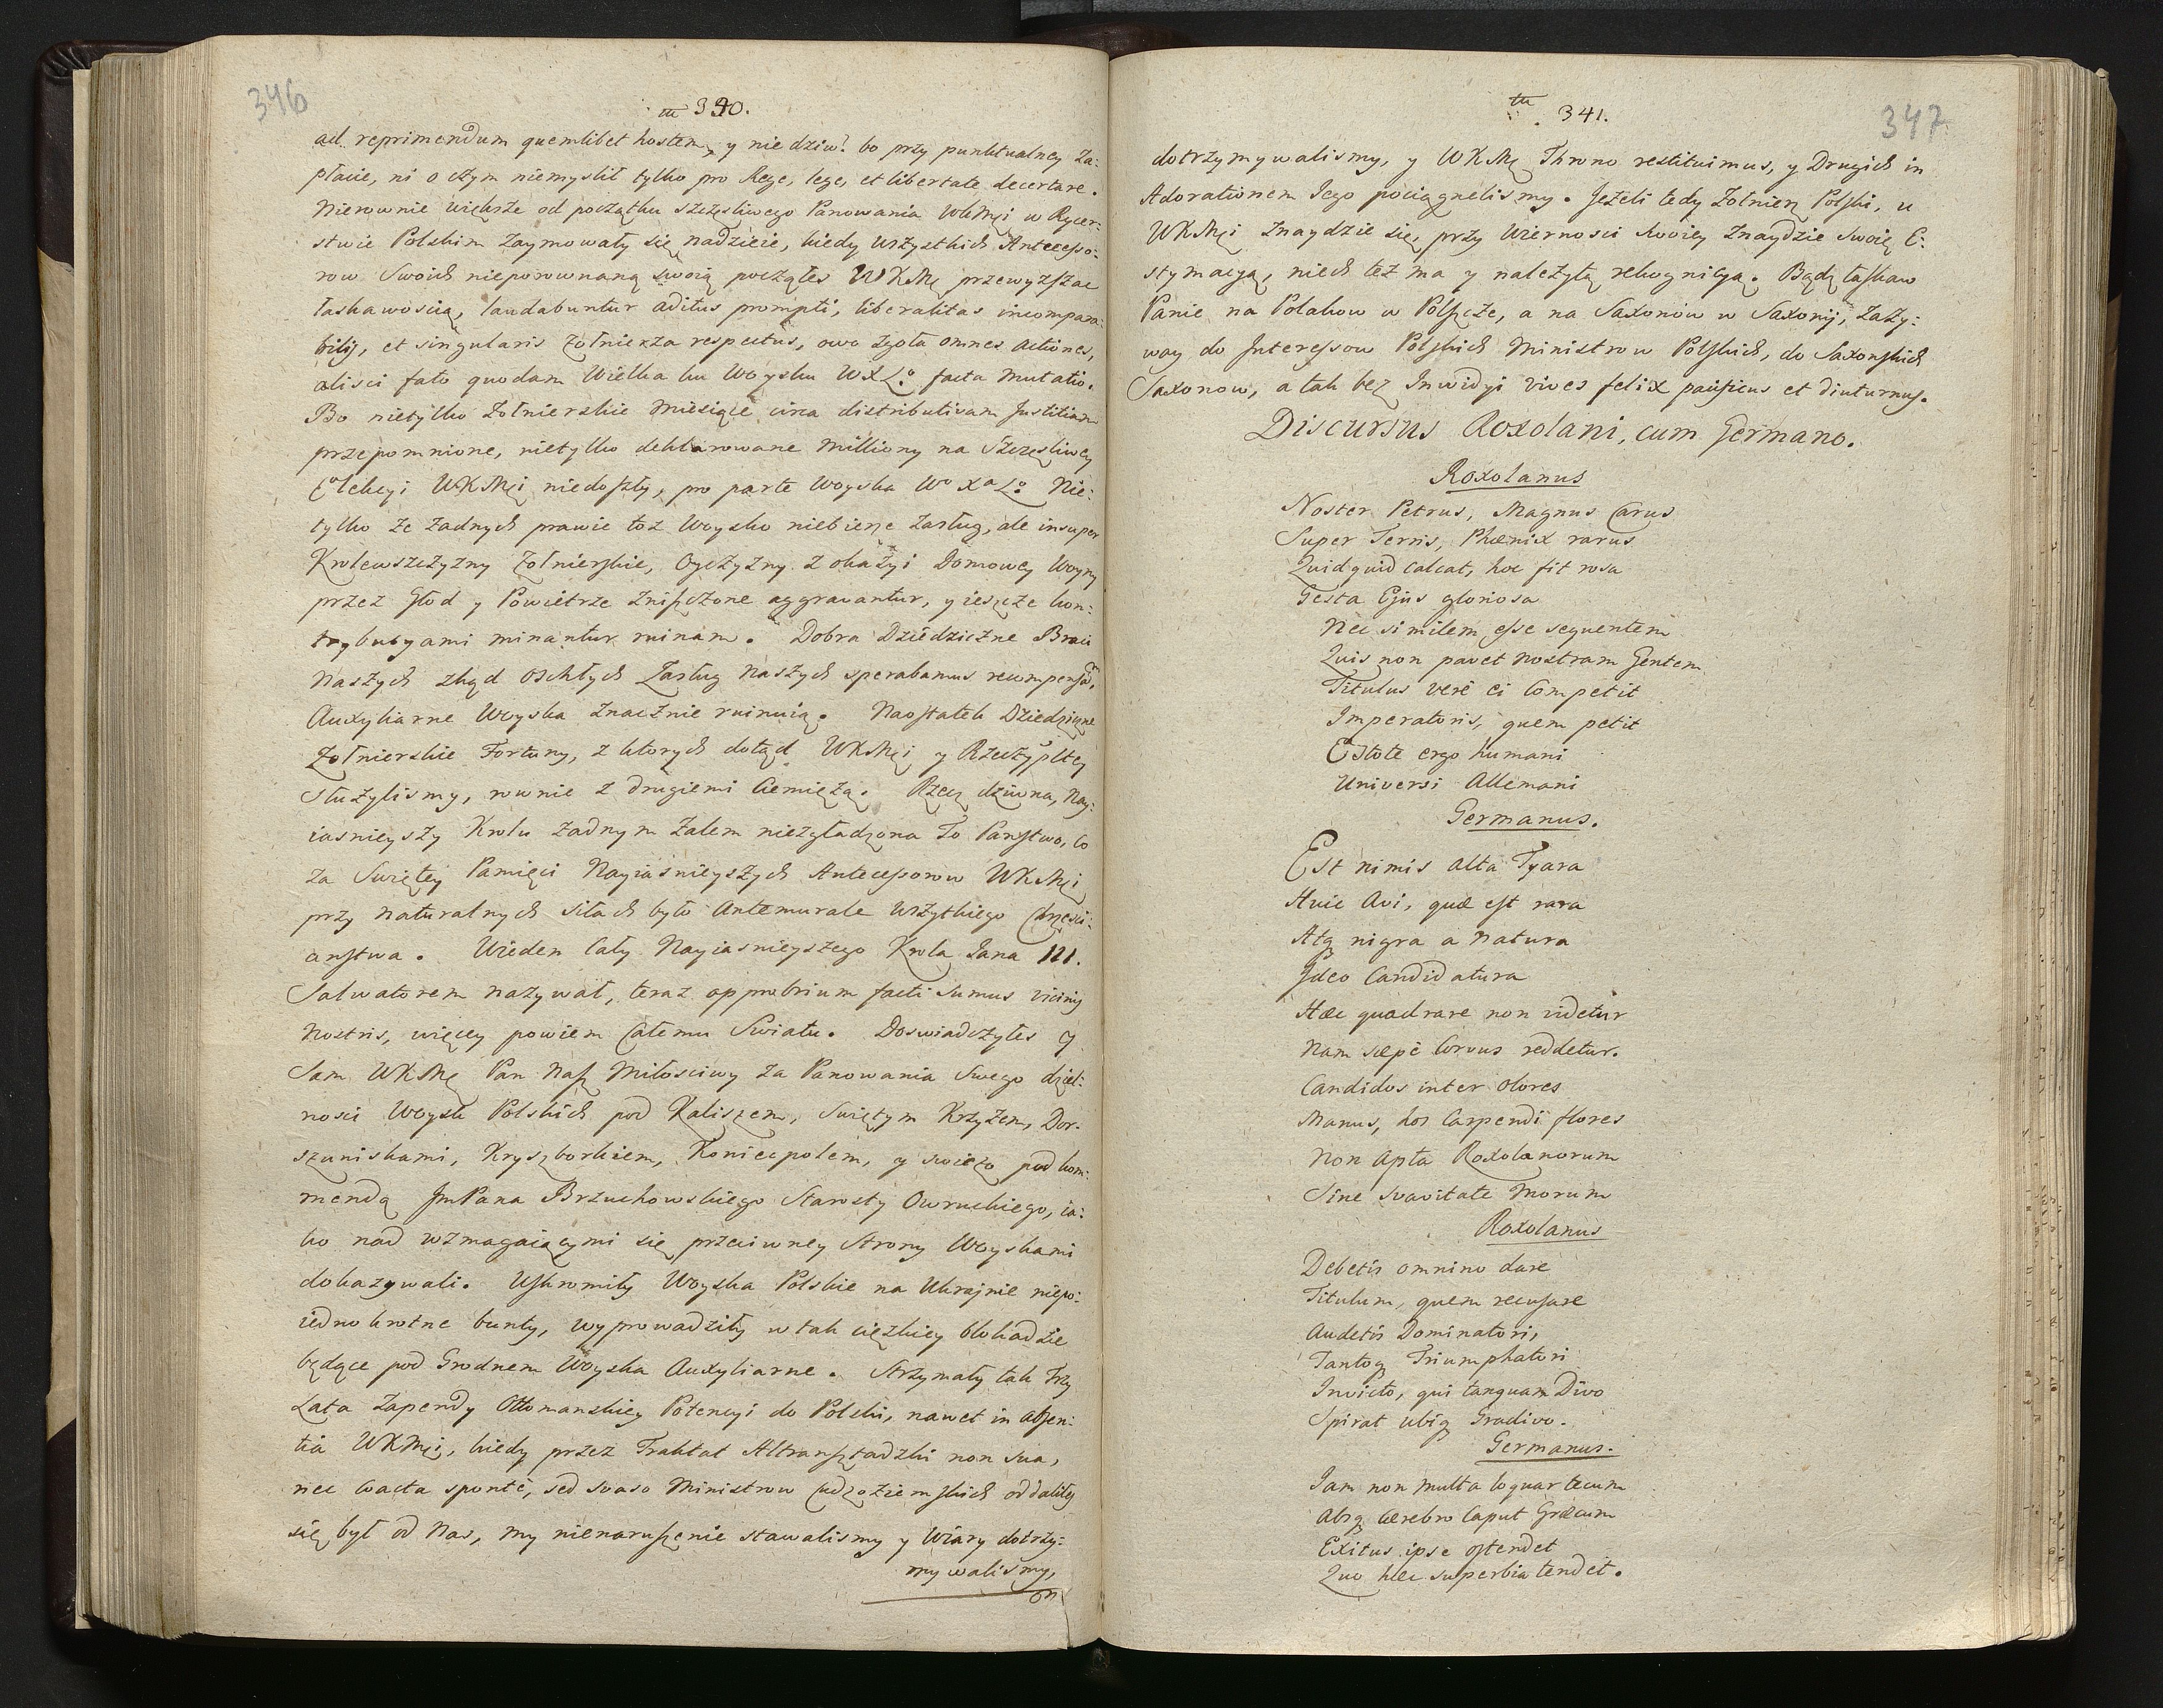 346
340.
ad reprimendum quemlibet hostem, y nie dziw? bo przy punktualney za:
płacie, ni o czym niemyslił tylko pro Rege, lege, et libertate decertare.
Nierownie większe od początku szczęsliwego Panowania WKMęi w Rycer:
stwie Polskim zaymowały się nadzieie, kiedy wszystkich Antecesso:
row Swoich nieporownaną swoią począłes WKMę przewyzszac
łaskawoscią, laudabuntur aditus prompti, liberalitas incompara:
bilij, et singularis żołnierza respectus, owo zgoła omnes actiones,
alisci fato quodam Wielka ku Woysku WXLo facta mutatio.
Bo nietylko żołnierskie Miesiące circa distributivam Justitiam
przepomnione, nietylko deklarowane Milliony na Szczęsliwey
Elekcyi WKMęi niedoszły, pro parte Woyska Wo Xa Lo Nie:
tylko że żadnych prawie toż Woysko niebierze zasług, ale insuper
Krolewszczyzny żołnierskie, Oyczyzny z okazyi Domowey Woyny
przez Głod y Powietrze zniszczone aggravantur, y ieszcze kon:
trybucyami minantur ruinam. Dobra Dziedziczne Braci
Naszych zkąd oschłych zasług naszych sperabamus recompensam,
Auxyliarne Woyska znacznie ruinuią. Naostatek Dziedziczne
żołnierskie Fortuny, z ktorych dotąd WKMęi y Rzeczypltey
służylismy, rownie z drugiemi Ciemiężą. Rzecz dziwna, Nay:
iasnieyszy Krolu żadnym żalem niezgładzona To Panstwo, co
za Swiętey Pamięci Nayiasnieyszych Antecessorow WKMęi
przy naturalnych siłach było Antemurale wszytkiego Chrzesci:
anstwa. Wieden cały Nayiasnieyszego Krola Jana III.
Salwatorem nazywał, teraz opprobrium facti sumus vicinis
nostris, więcey powiem całemu Swiatu. Doswiadczyłes y
Sam WKMę Pan Nasz Miłosciwy za Panowania Swego dziel:
nosci Woysk Polskich pod Kaliszem, Swiętym Krzyżem, Dor:
szuniszkami, Kryszborkiem, Koniecpolem, y swieżo pod kom:
mendą JmPana Brzuchowskiego Starosty Owruckiego, ia:
ko nad wzmagaiącymi się przeciwney Strony Woyskami
dokazywali. Uskromiły Woyska Polskie na Ukrajnie niepo:
iednokrotne bunty, wyprowadziły w tak cięzkiey blokadzie
będące pod Grodnem Woyska Auxyliarne. Strzymały tak Trzy
Lata zapendy Ottomanskiey Potencyi do Polski, nawet in absen:
tia WKMęi, kiedy przez Traktat Altransztadzki non sua,
nec coacta sponte, sed svaso Ministrow Cudzoziemskich oddaliłes
się był od Nas, my nienaruszenie stawalismy y Wiary dotrzy:
mywalismy,
341.
347
dotrzymywalismy, y WKMę Throno restituimus, y Drugich in
Adorationem Jego pociągnelismy. Jeżeli tedy Żołnierz Polski, u
WKMęi znaydzie się, przy Wiernosci swoiey znaydzie swoię E:
stymacyą, niech też ma y należytą rekognicyą. Bądz łaskaw
Panie na Polakow w Polszcze, a na Saxonow w Saxonij, zaży:
way do Interessow Polskich Ministrow Polskich, do Saxonskich
Saxonow, a tak bez Inwidyi vives felix pacificus et diuturnus.
Discursus Roxolani, cum Germano.
Roxolanus
Noster Petrus, Magnus Carus
Super Terris, Phœnix rarus
Quidquid calcat, hoc fit rosa
Gesta Ejus gloriosa
Nec similem esse sequentem
Quis non pavet nostram Gentem
Titulus verè ei Competit
Imperatoris, quem petit
Estote ergo humani
Universi Allemani
Germanus.
Est nimis alta Tyara
Huic Avi, quæ est rara
Atq nigra a Natura
Ideo Candidatura
Hæc quadrare non videtur
Nam sæpè Corvus reddetur.
Candidos inter olores
Manus, hos Carpendi flores
Non Apta Roxolanorum
Sine Svavitate Morum
Roxolanus
Debetis omnino dare
Titulum, quem recusare
Audetis Dominatori,
Tantoq Triumphatori
Invicto, qui tanquam Divo
Spirat ubiq Gradivo.
Germanus.
Jam non multa loquar tecum
Absq Cerebro Caput Græcum
Exitus ipse ostendet
Quo hæc superbia tendet.